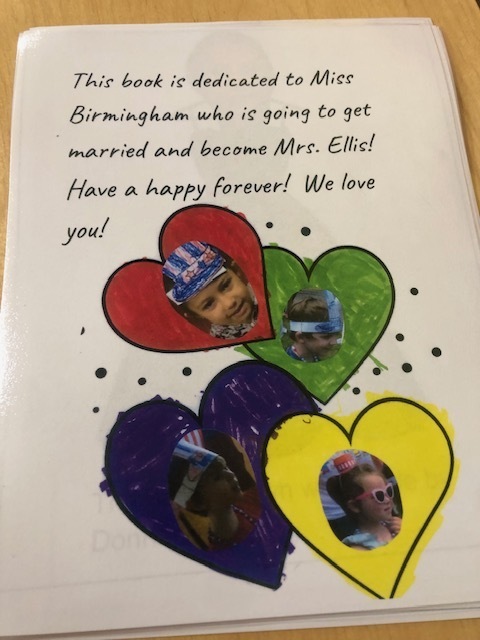 This book is dedicated to Miss
Birmingham who is going to get
married and become Mrs. Ellis!
Have a happy forever! We love
you!